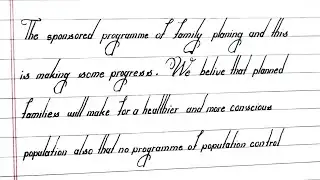 The sponsored programme of family planing and this
is making some progress. We belive that planned
families will make for a healthier and more conscious
population also that no programme of population control